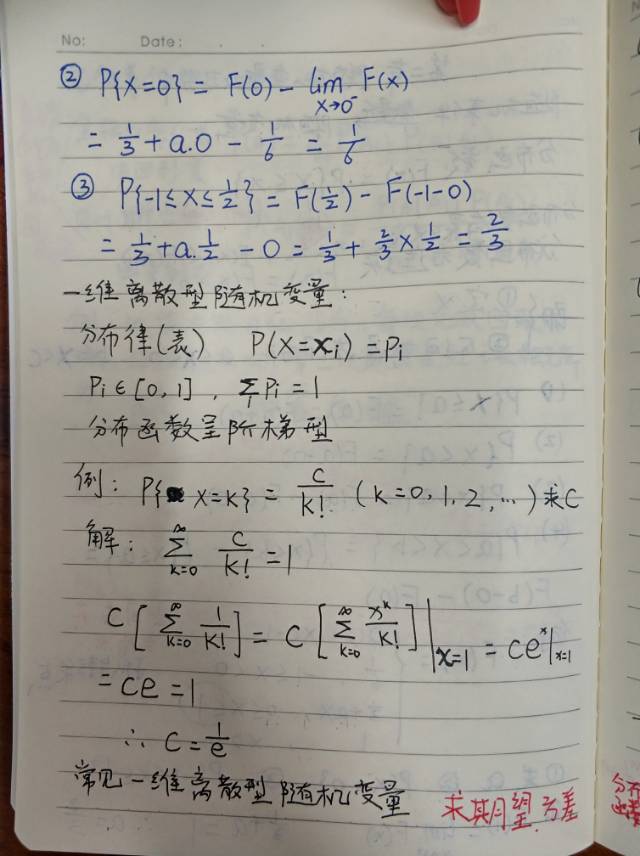 No: Date:
② P{X=0} = F(0) - lim_{x→0⁻} F(x)
= 1/3 + a.0 - 1/6 = 1/6
③ P{-1≤X≤1/2} = F(1/2) - F(-1-0)
= 1/3 + a.1/2 - 0 = 1/3 + 2/3 × 1/2 = 2/3
一维离散型随机变量:
分布律(表) P(X=xᵢ)=Pᵢ
Pᵢ∈[0,1], ∑ᵢPᵢ=1
分布函数呈阶梯型
例: P{X=K} = C/K! (K=0,1,2,…)求C
解: ∑_{K=0}^{∞} C/K! = 1
C[∑_{K=0}^{∞} 1/K!] = C[∑_{K=0}^{∞} x^K/K!]|_{x=1} = Ce^x|_{x=1}
= Ce = 1
∴ C = 1/e
常见一维离散型随机变量 求期望.方差